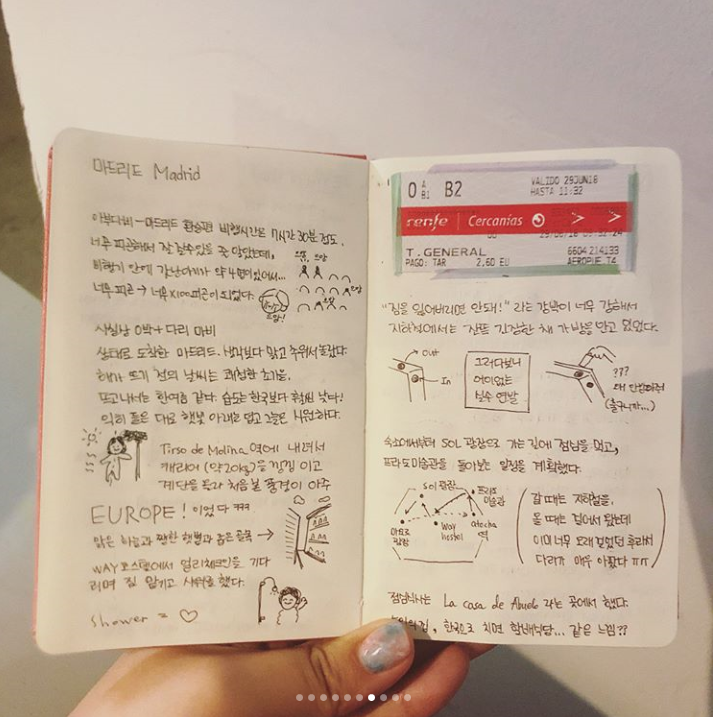 마드리드 Madrid
아부다비-마드리드 환승편 비행시간은 7시간 30분 정도.
너무 피곤해서 잘 잘 수 있을 줄 알았는데,
비행기 안에 갓난아기가 약 4명 있어서...
너무 피곤 → 너무 x100 피곤이 되었다.
으앙
사실상 0박 + 다리 마비
상태로 도착한 마드리드. 생각보다 맑고 추워서 놀랐다.
해가 뜨기 전의 날씨는 쾌청한 초가을,
뜨고 나서는 한여름 같다. 습도는 한국보다 훨씬 낮다!
익히 들은 대로 햇빛 아래는 덥고 그늘은 시원하다.
Tirso de Molina 역에 내려서
캐리어 (약 20kg)를 낑낑 이고
계단을 올라 처음 본 풍경이 아주
EUROPE! 이었다 ㅋㅋㅋ
맑은 하늘과 쨍한 햇볕과 좁은 골목 →
WAY 호스텔에서 얼리체크인을 기다
리며 짐 맡기고 샤워를 했다.
shower = ♡
0 A B1 B2
VALIDO 29JUN16
HASTA 11:32
renfe Cercanias > >
T. GENERAL
6604 214133
PAGO: TAR 2.60 EU AEROPUE T4
"짐을 잃어버리면 안돼!" 라는 강박이 너무 강해서
지하철에서는 잔뜩 긴장한 채 가방을 안고 있었다.
Out
In
그러다보니
어이없는
실수 연발
???
왜 안열려
숙소에서부터 SOL 광장으로 가는 길에 점심을 먹고,
프라도미술관을 돌아보는 일정을 계획했다.
sol 광장
프라도
미술관
마요르
광장
Way
hostel
atocha
역
갈 때는 지하철을,
올 때는 걸어서 왔는데
이미 너무 오래 걸었던 후라서
다리가 매우 아팠다 ㅠㅠ
점심식사는 La casa de Abuelo 라는 곳에서 했다.
한국으로 치면 할매식당... 같은 느낌??